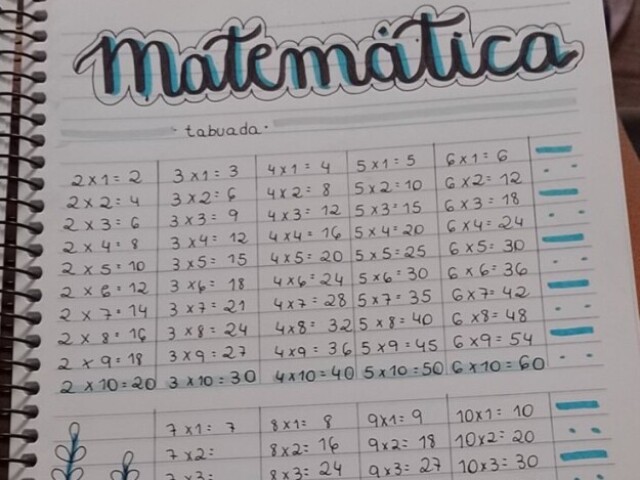 matemática
tabuada
2x1=2 3x1=3 4x1=4 5x1=5 6x1=6
2x2=4 3x2=6 4x2=8 5x2=10 6x2=12
2x3=6 3x3=9 4x3=12 5x3=15 6x3=18
2x4=8 3x4=12 4x4=16 5x4=20 6x4=24
2x5=10 3x5=15 4x5=20 5x5=25 6x5=30
2x6=12 3x6=18 4x6=24 5x6=30 6x6=36
2x7=14 3x7=21 4x7=28 5x7=35 6x7=42
2x8=16 3x8=24 4x8=32 5x8=40 6x8=48
2x9=18 3x9=27 4x9=36 5x9=45 6x9=54
2x10=20 3x10=30 4x10=40 5x10=50 6x10=60
7x1=7 8x1=8 9x1=9 10x1=10
7x2= 8x2=16 9x2=18 10x2=20
7x3= 8x3=24 9x3=27 10x3=30